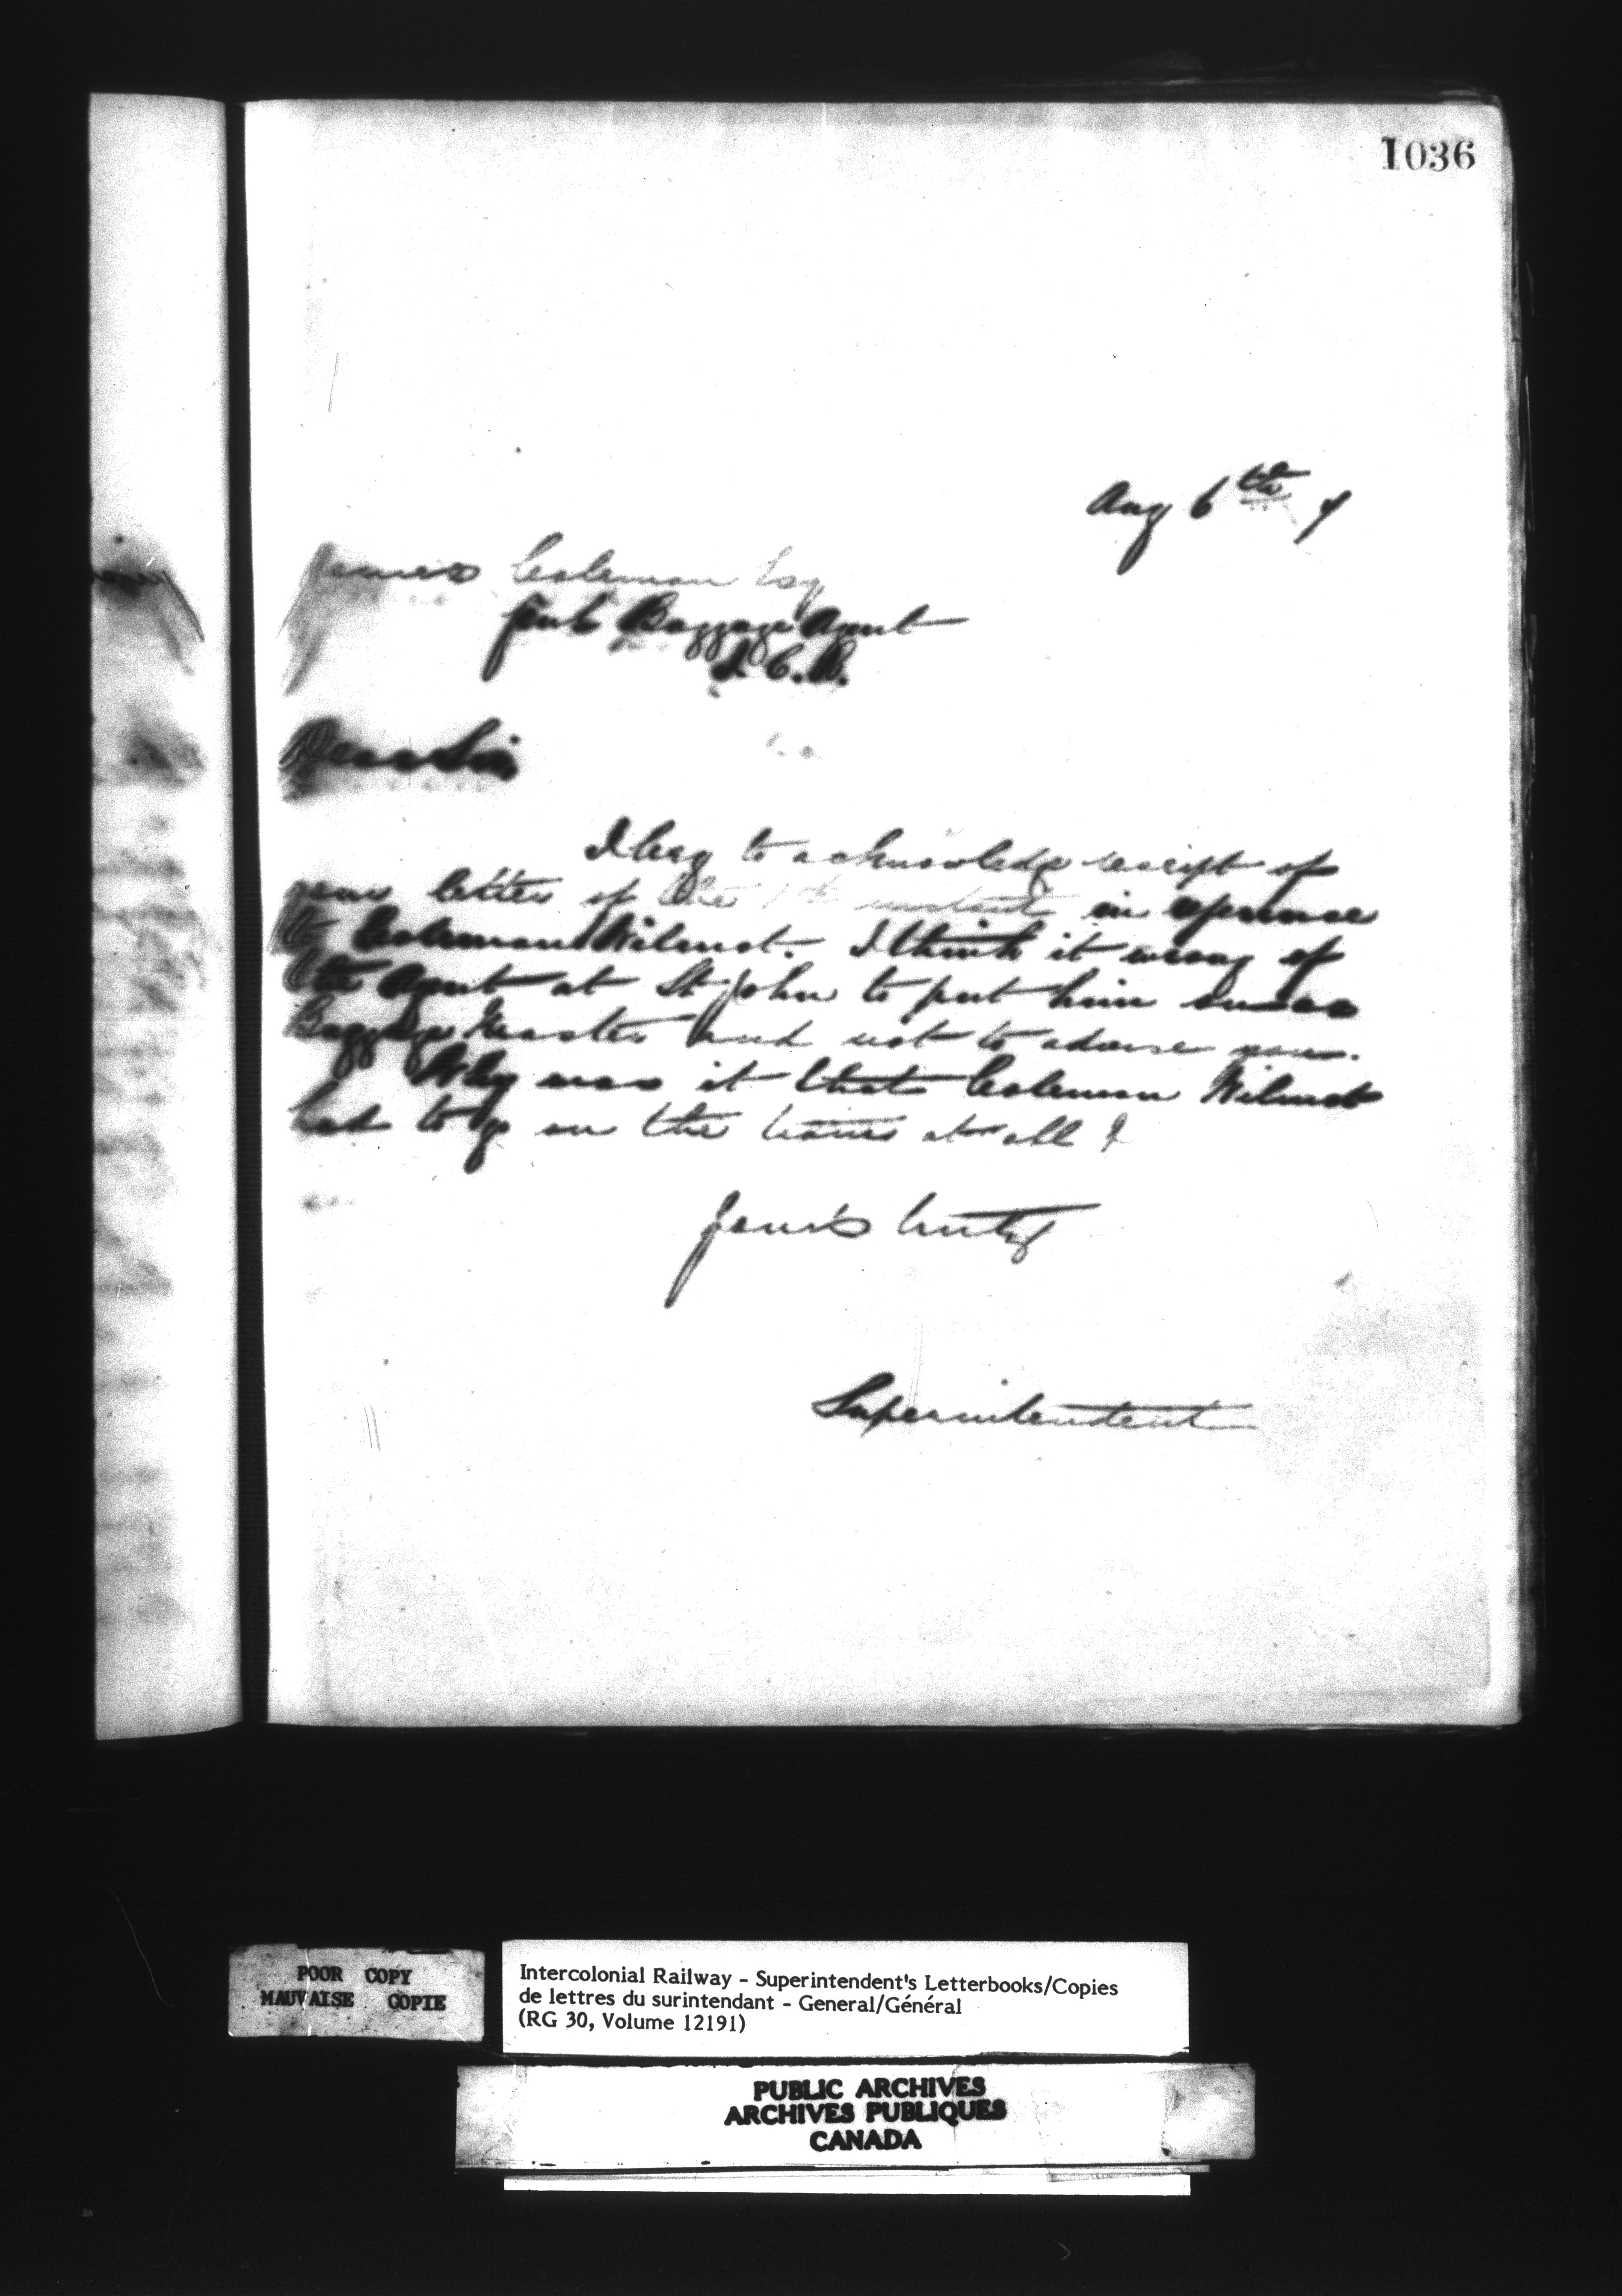 1036
Aug 6th 7
James Coleman Esq
Genl Baggage Agent
I.C.R.
Dear Sir
I beg to acknowledge receipt of
your letter of the instant in reference
to Coleman Wilmot. I think it wrong of
the Agent at St John to put him on as
Baggage Master and not to advise you.
Why was it that Coleman Wilmot
had to go on the trains at all?
Yours truly
Superintendent
POOR COPY
MAUVAISE COPIE
Intercolonial Railway - Superintendent's Letterbooks/Copies
de lettres du surintendant - General/Général
(RG 30, Volume 12191)
PUBLIC ARCHIVES
ARCHIVES PUBLIQUES
CANADA